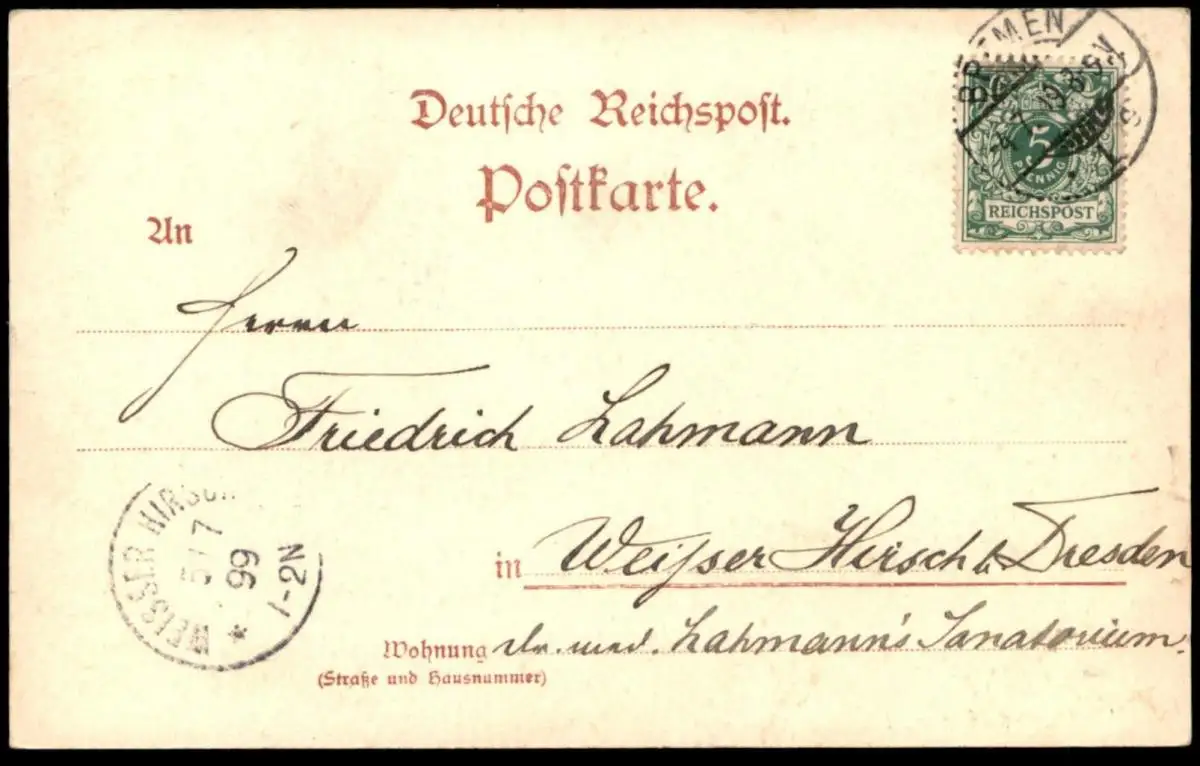 Deutsche Reichspost.
Postkarte.
BREMEN
5
PFENNIG
REICHSPOST
An
Herrn
Friedrich Lahmann
in Weißer Hirsch b. Dresden
Wohnung Dr. med. Lahmann's Sanatorium.
(Straße und Hausnummer)
WEISSER HIRSCH
5/7
99
1-2N